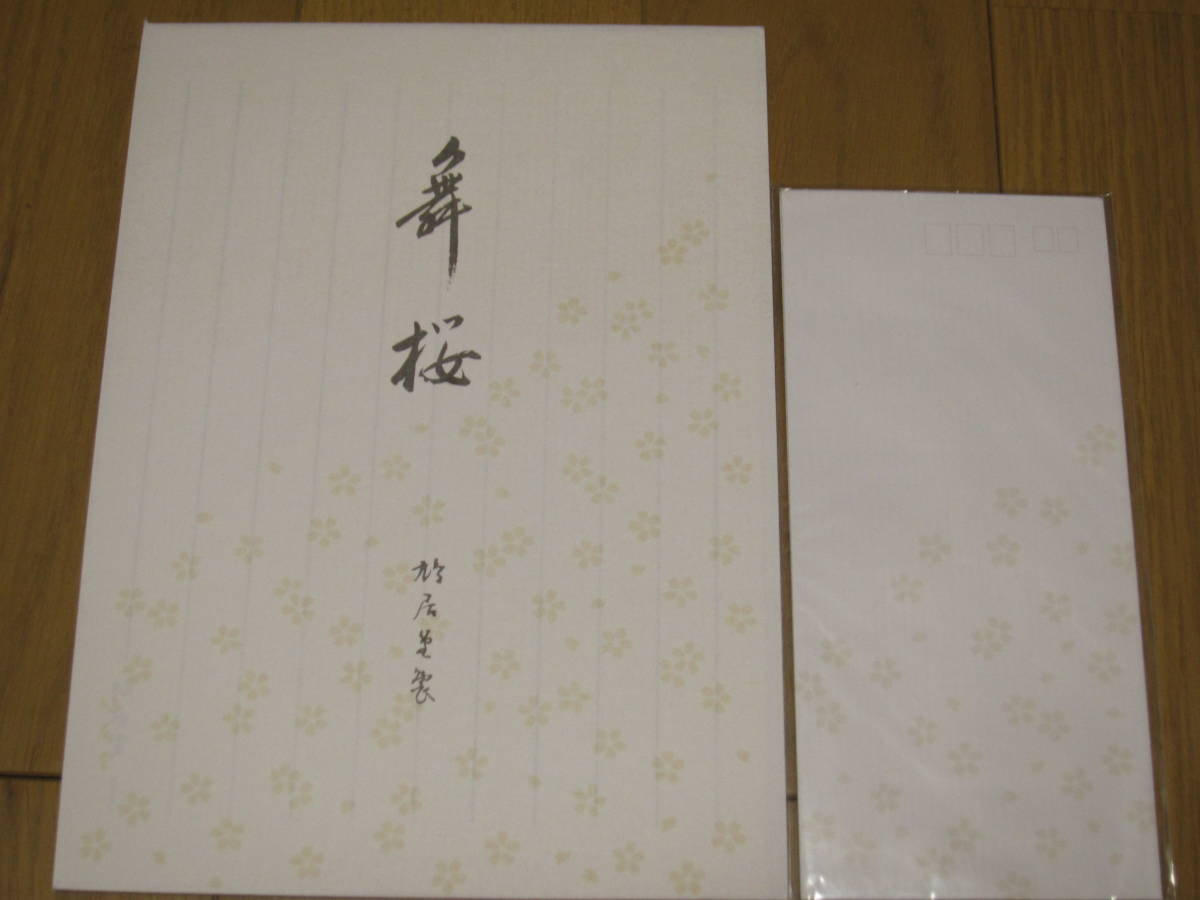 舞桜
鳩居堂製